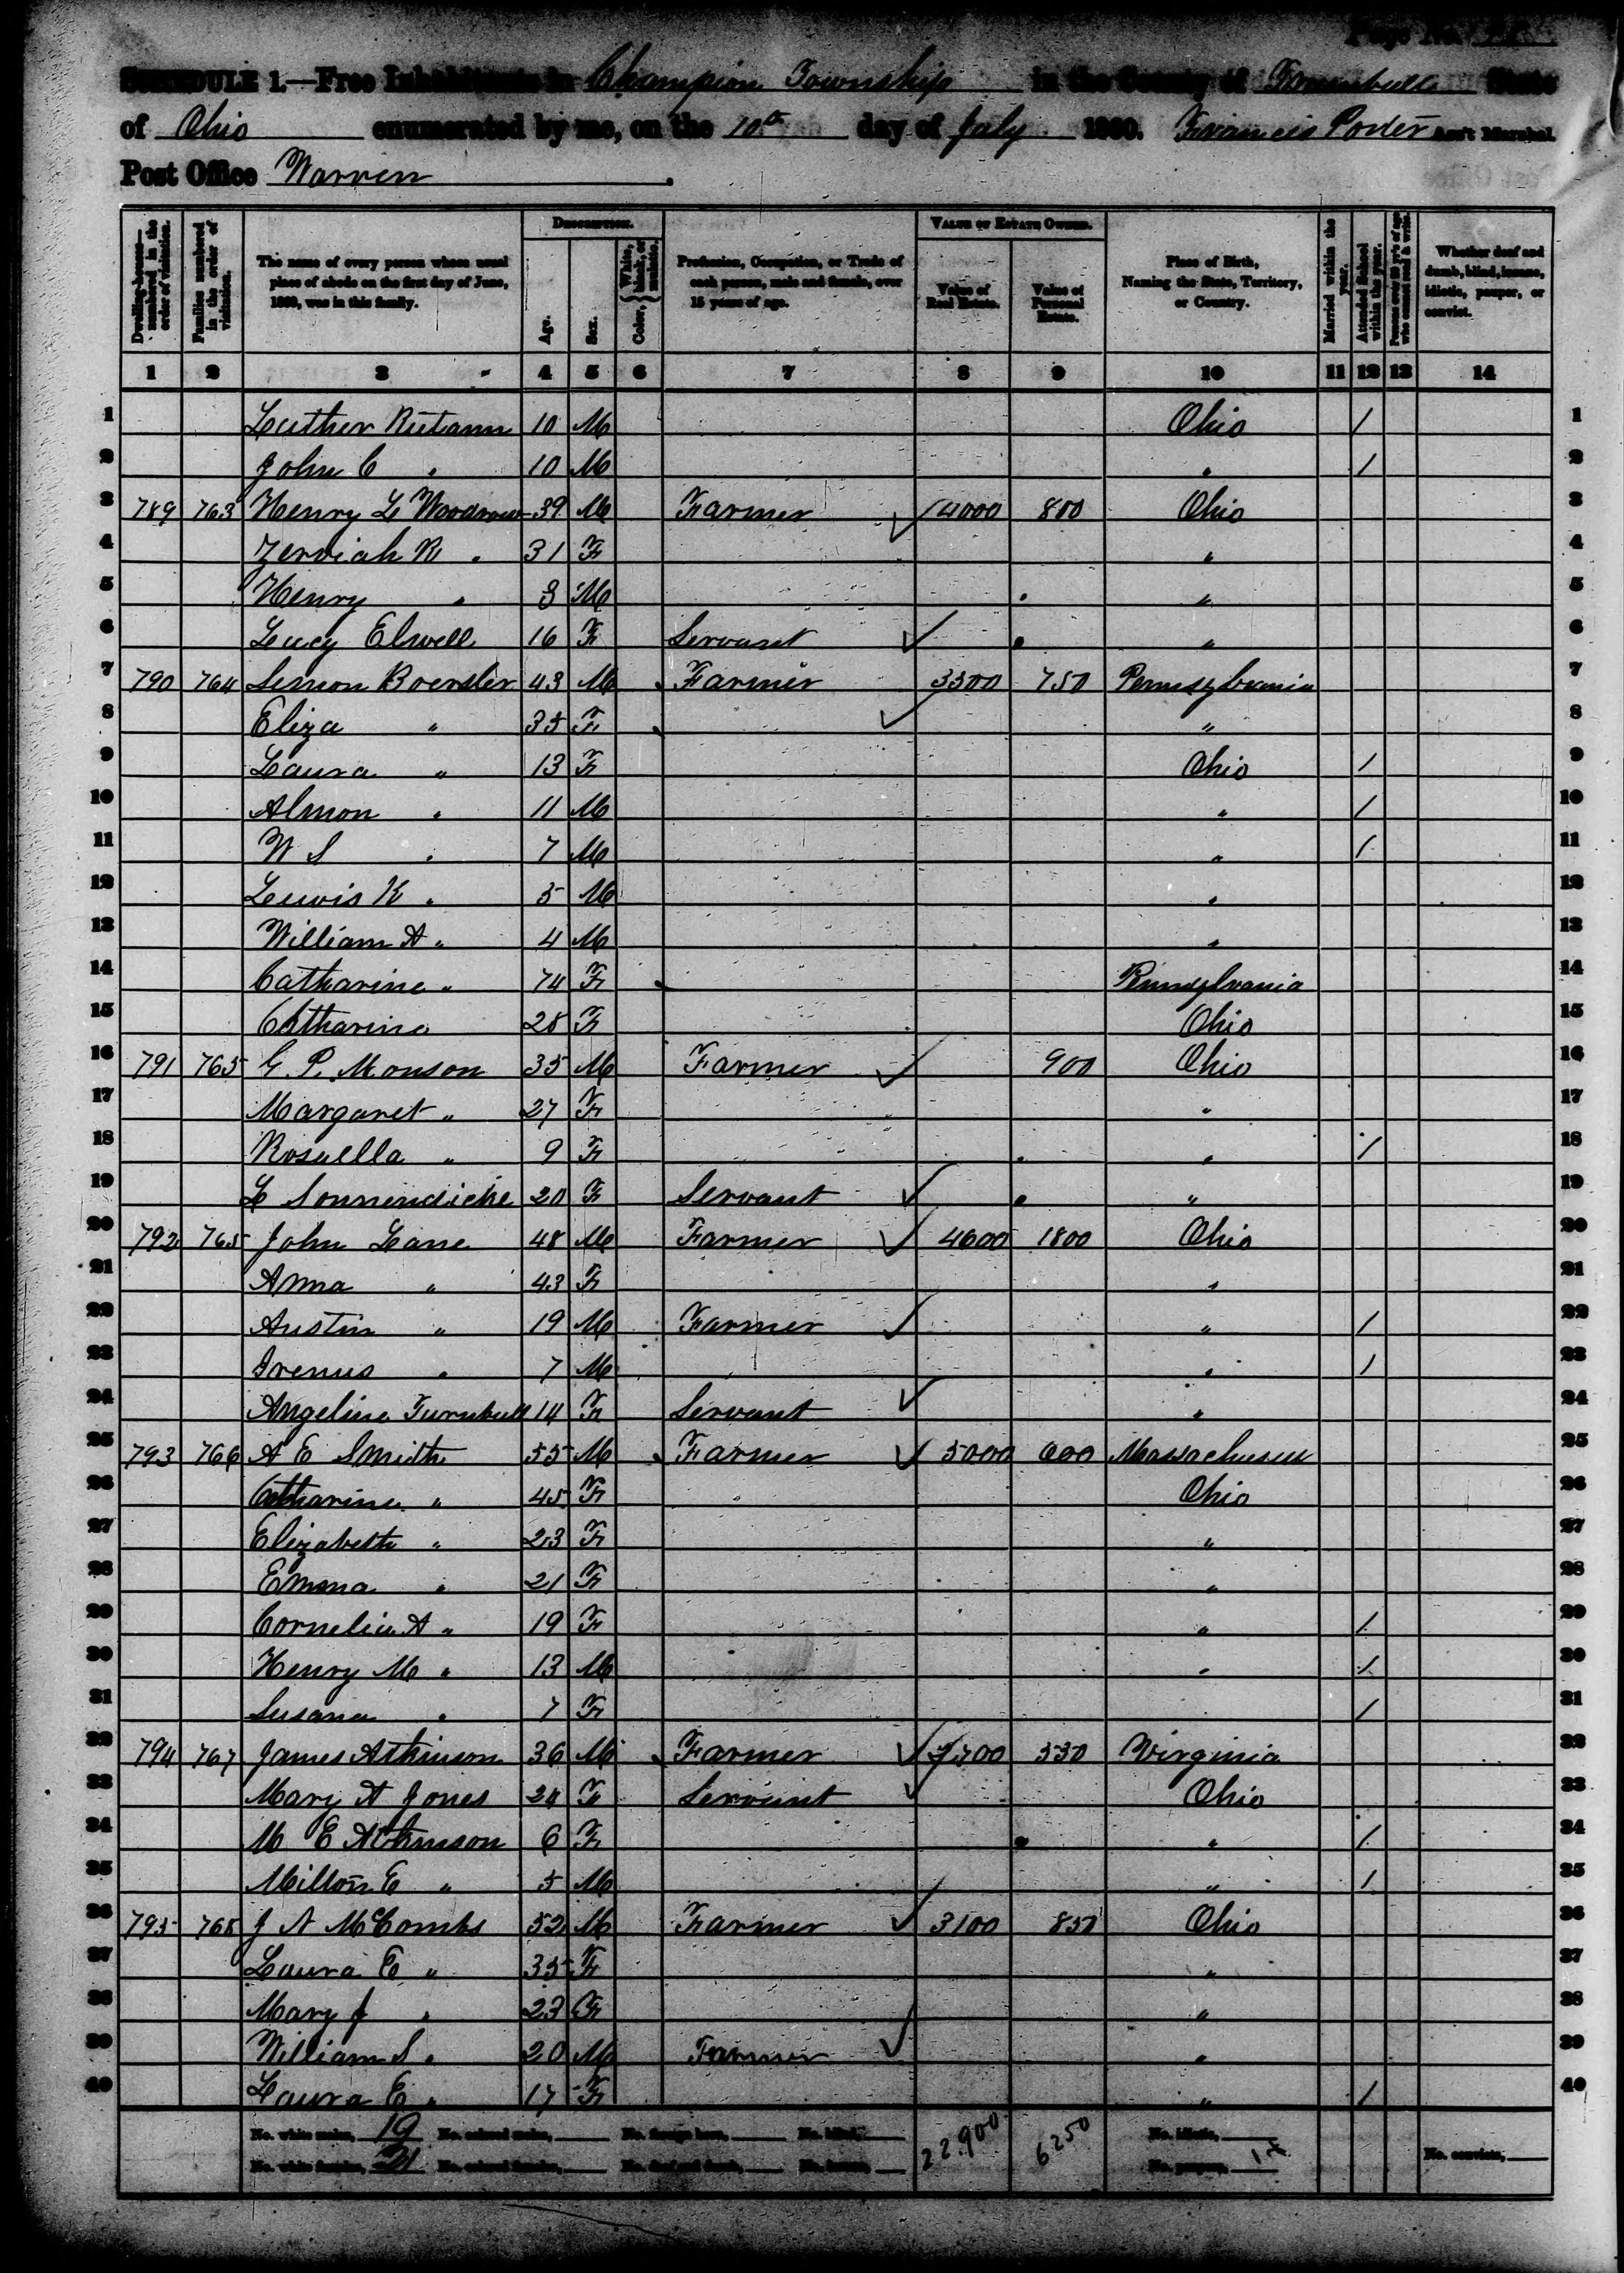 Page No.
SCHEDULE 1.—Free Inhabitants in Champion Township in the County of Trumbull State
of Ohio enumerated by me, on the 10th day of July 1860. Francis Porter Ass't Marshal.
Post Office Warren.
Dwelling-houses—numbered in the order of visitation. Families numbered in the order of visitation. The name of every person whose usual place of abode on the first day of June, 1860, was in this family. Description. Age. Sex. Color, { White, black, or mulatto. Profession, Occupation, or Trade of each person, male and female, over 15 years of age. Value of Estate Owned. Value of Real Estate. Value of Personal Estate. Place of Birth, Naming the State, Territory, or Country. Married within the year. Attended School within the year. Persons over 20 y'rs of age who cannot read & write. Whether deaf and dumb, blind, insane, idiotic, pauper, or convict.
1 2 3 4 5 6 7 8 9 10 11 12 13 14
1 Luther Rutann 10 M Ohio / 1
2 John C " 10 M " / 2
3 789 763 Henry L Woodrow 39 M Farmer 4000 800 Ohio 3
4 Zerviah R " 31 F " 4
5 Henry " 3 M " 5
6 Lucy Elwell 16 F Servant " 6
7 790 764 Simon Boersler 43 M Farmer 3300 750 Pennsylvania 7
8 Eliza " 35 F " 8
9 Laura " 13 F Ohio / 9
10 Almon " 11 M " / 10
11 W S " 7 M " / 11
12 Lewis K " 5 M " 12
13 William A " 4 M " 13
14 Catharine " 74 F Pennsylvania 14
15 Catharine 28 F Ohio 15
16 791 765 G. P. Monson 35 M Farmer 900 Ohio 16
17 Margaret " 27 F " 17
18 Rosella " 9 F " / 18
19 L Sonnendicke 20 F Servant " 19
20 792 765 John Lane 48 M Farmer 4600 1800 Ohio 20
21 Anna " 43 F " 21
22 Austin " 19 M Farmer " / 22
23 Irenus " 7 M " / 23
24 Angeline Turnbull 14 F Servant " 24
25 793 766 A E Smith 55 M Farmer 5000 600 Massachusett 25
26 Catharine " 45 F Ohio 26
27 Elizabeth " 23 F " 27
28 Emma " 21 F " 28
29 Cornelia A " 19 F " / 29
30 Henry M " 13 M " / 30
31 Susana " 7 F " / 31
32 794 767 James Atkinson 36 M Farmer 550 Virginia 32
33 Mary A Jones 24 F Servant Ohio 33
34 M E Atkinson 6 F " / 34
35 Milton E " 5 M " / 35
36 795 768 J A McCombs 52 M Farmer 3100 850 Ohio 36
37 Laura E " 35 F " 37
38 Mary J " 23 F " 38
39 William S " 20 M Farmer " 39
40 Laura E " 17 F " / 40
No. white males, 19 No. colored males, No. foreign born, No. blind, 22.900 6250 No. idiotic,
No. white females, 21 No. colored females, No. deaf and dumb, No. insane, No. paupers, No. convicts,